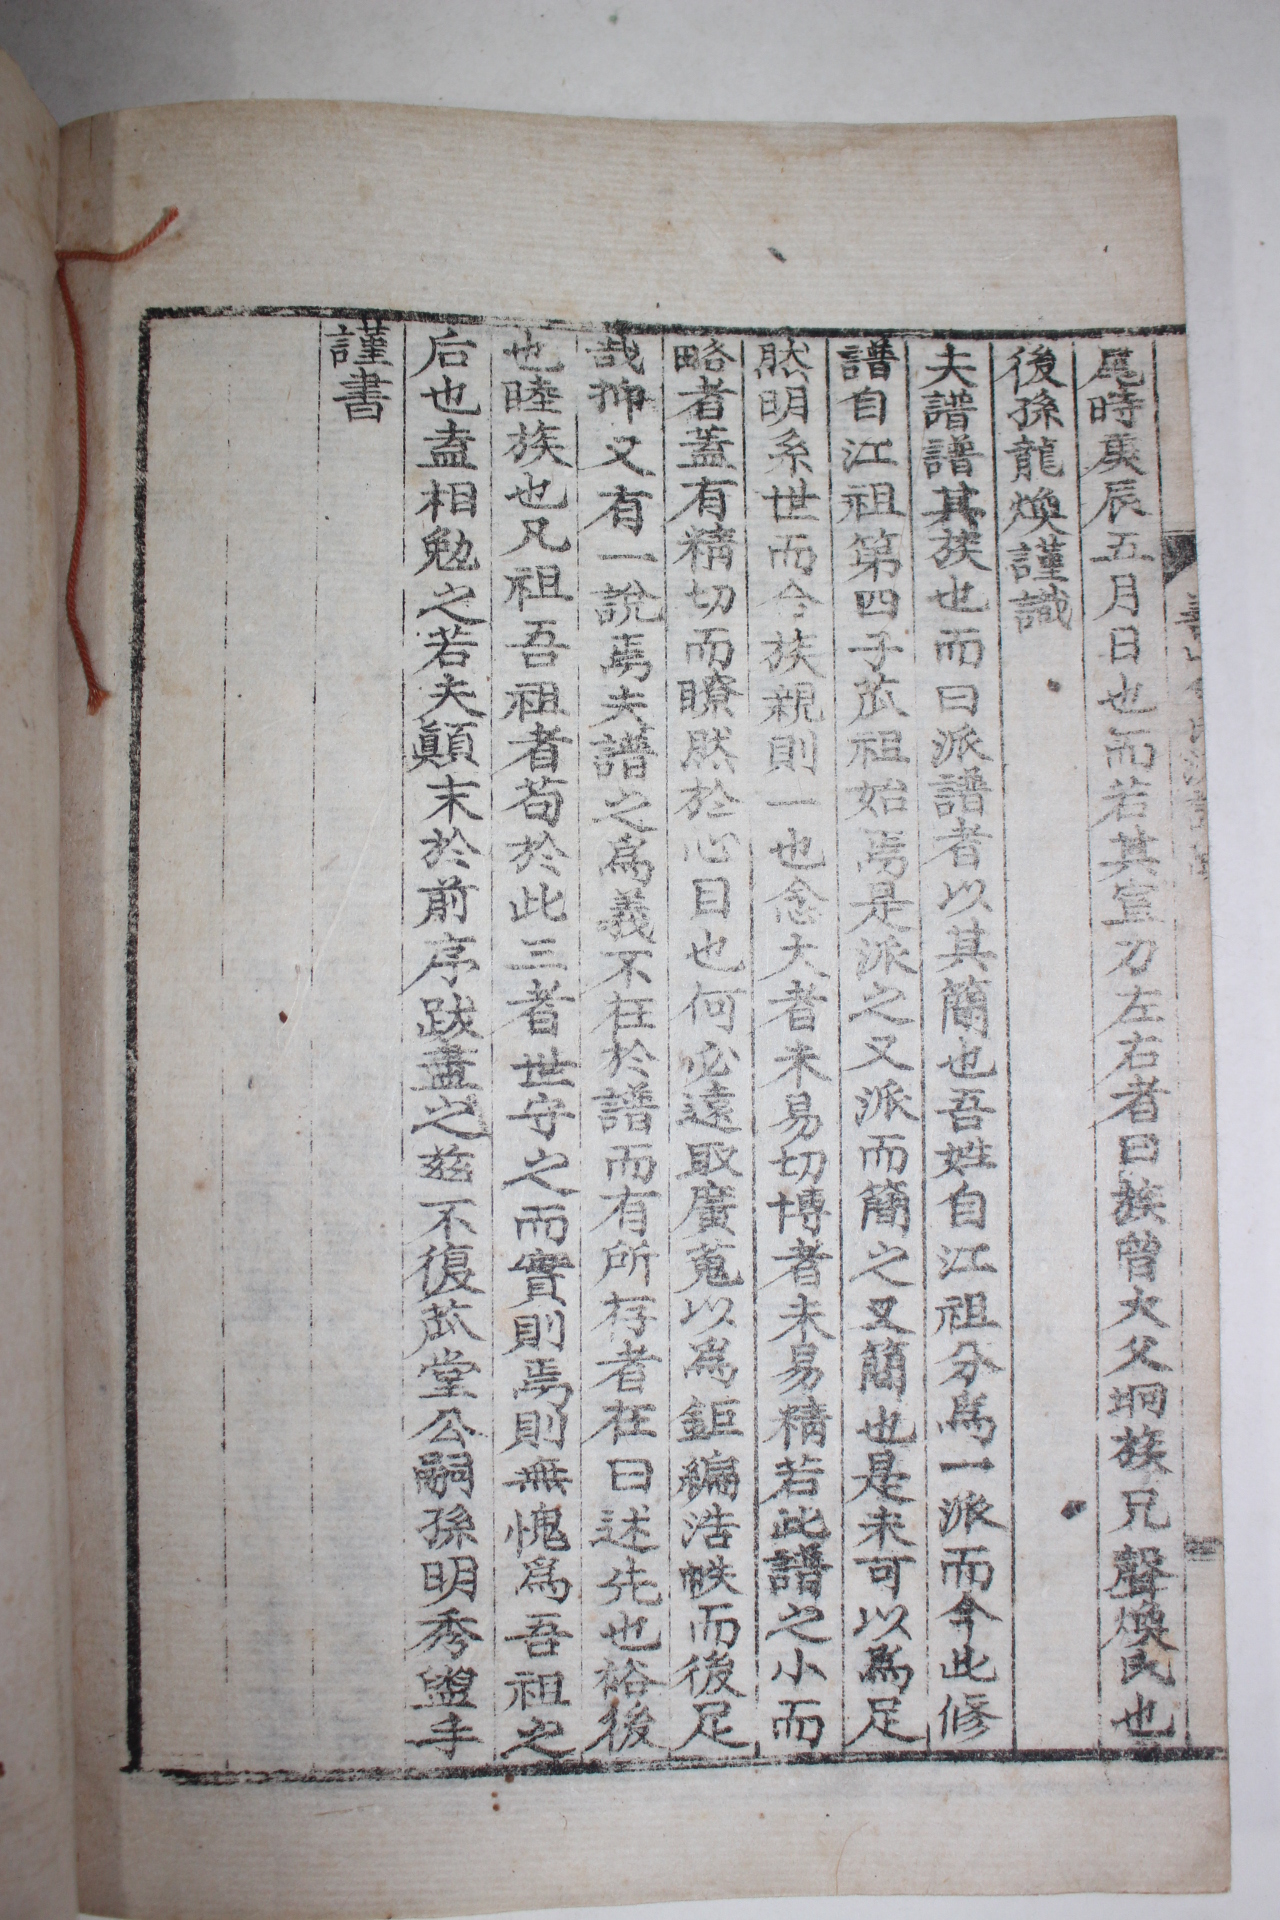 尾時庚辰五月日也而若其宣力左右者曰族曾大父垌族兄聲煥氏也
後孫龍煥謹識
夫譜譜其族也而曰派譜者以其簡也吾姓自江祖分爲一派而今此修
譜自江祖第四子苽祖始焉是派之又派而簡之又簡也是未可以爲足
然明系世而今族親則一也念大者未易切博者未易精若此譜之小而
略者蓋有精切而瞭然於心目也何必遠取廣蒐以爲鉅編浩帙而後足
哉抑又有一說焉夫譜之爲義不在於譜而有所存者在曰述先也裕後
也睦族也凡祖吾祖者苟於此三者世守之而實則焉則無愧爲吾祖之
后也盍相勉之若夫顚末於前序跋盡之玆不復苽堂公嗣孫明秀盥手
謹書